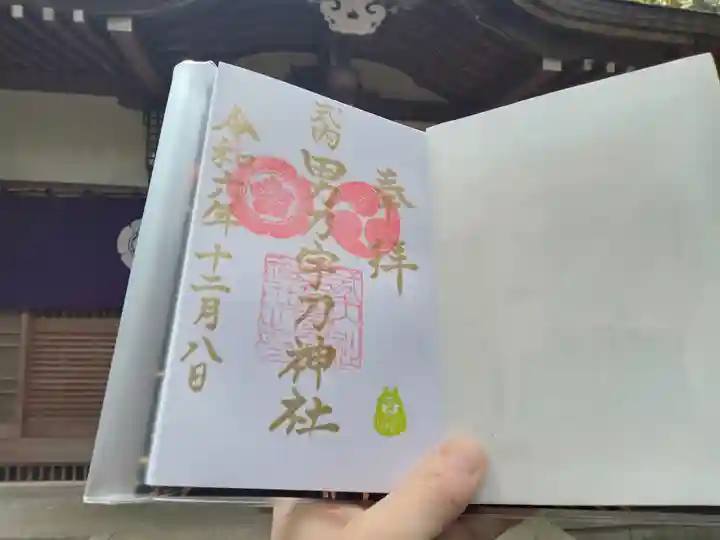 奉拝
式内
男乃宇刀神社
令和六年十二月八日